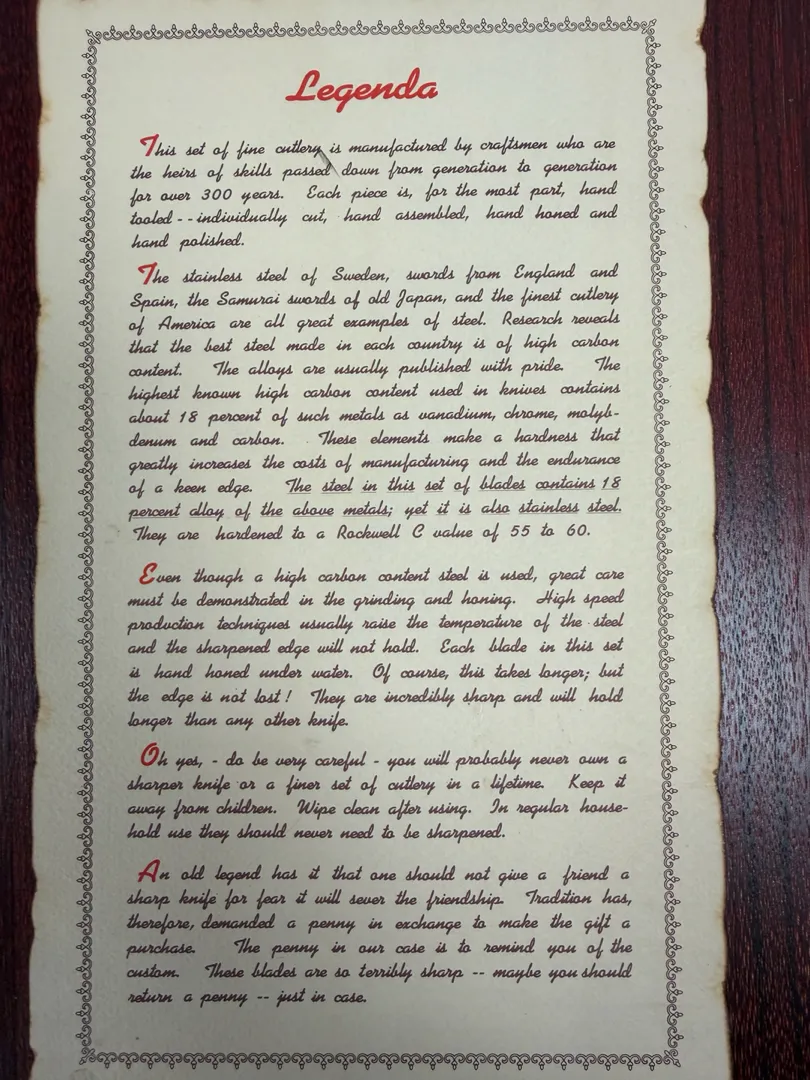 Legenda
This set of fine cutlery is manufactured by craftsmen who are
the heirs of skills passed down from generation to generation
for over 300 years. Each piece is, for the most part, hand
tooled - - individually cut, hand assembled, hand honed and
hand polished.
The stainless steel of Sweden, swords from England and
Spain, the Samurai swords of old Japan, and the finest cutlery
of America are all great examples of steel. Research reveals
that the best steel made in each country is of high carbon
content. The alloys are usually published with pride. The
highest known high carbon content used in knives contains
about 18 percent of such metals as vanadium, chrome, molyb-
denum and carbon. These elements make a hardness that
greatly increases the costs of manufacturing and the endurance
of a keen edge. The steel in this set of blades contains 18
percent alloy of the above metals; yet it is also stainless steel.
They are hardened to a Rockwell C value of 55 to 60.
Even though a high carbon content steel is used, great care
must be demonstrated in the grinding and honing. High speed
production techniques usually raise the temperature of the steel
and the sharpened edge will not hold. Each blade in this set
is hand honed under water. Of course, this takes longer; but
the edge is not lost! They are incredibly sharp and will hold
longer than any other knife.
Oh yes, - do be very careful - you will probably never own a
sharper knife or a finer set of cutlery in a lifetime. Keep it
away from children. Wipe clean after using. In regular house-
hold use they should never need to be sharpened.
An old legend has it that one should not give a friend a
sharp knife for fear it will sever the friendship. Tradition has,
therefore, demanded a penny in exchange to make the gift a
purchase. The penny in our case is to remind you of the
custom. These blades are so terribly sharp -- maybe you should
return a penny -- just in case.